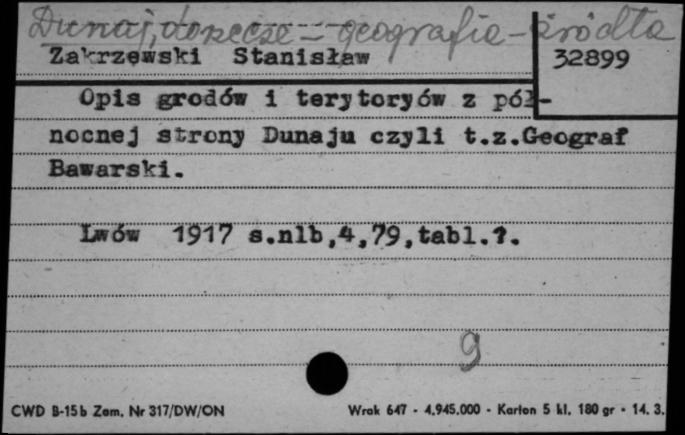 Dunaj, dorzecze - geografia - źródła
Zakrzewski Stanisław
32899
Opis grodów i terytoryów z pół-
nocnej strony Dunaju czyli t.z.Geograf
Bawarski.
Lwów 1917 s.nlb,4,79,tabl.1.
9
CWD B-15b Zam. Nr 317/DW/ON
Wrak 647 - 4.945.000 - Karton 5 kl. 180 gr - 14. 3.